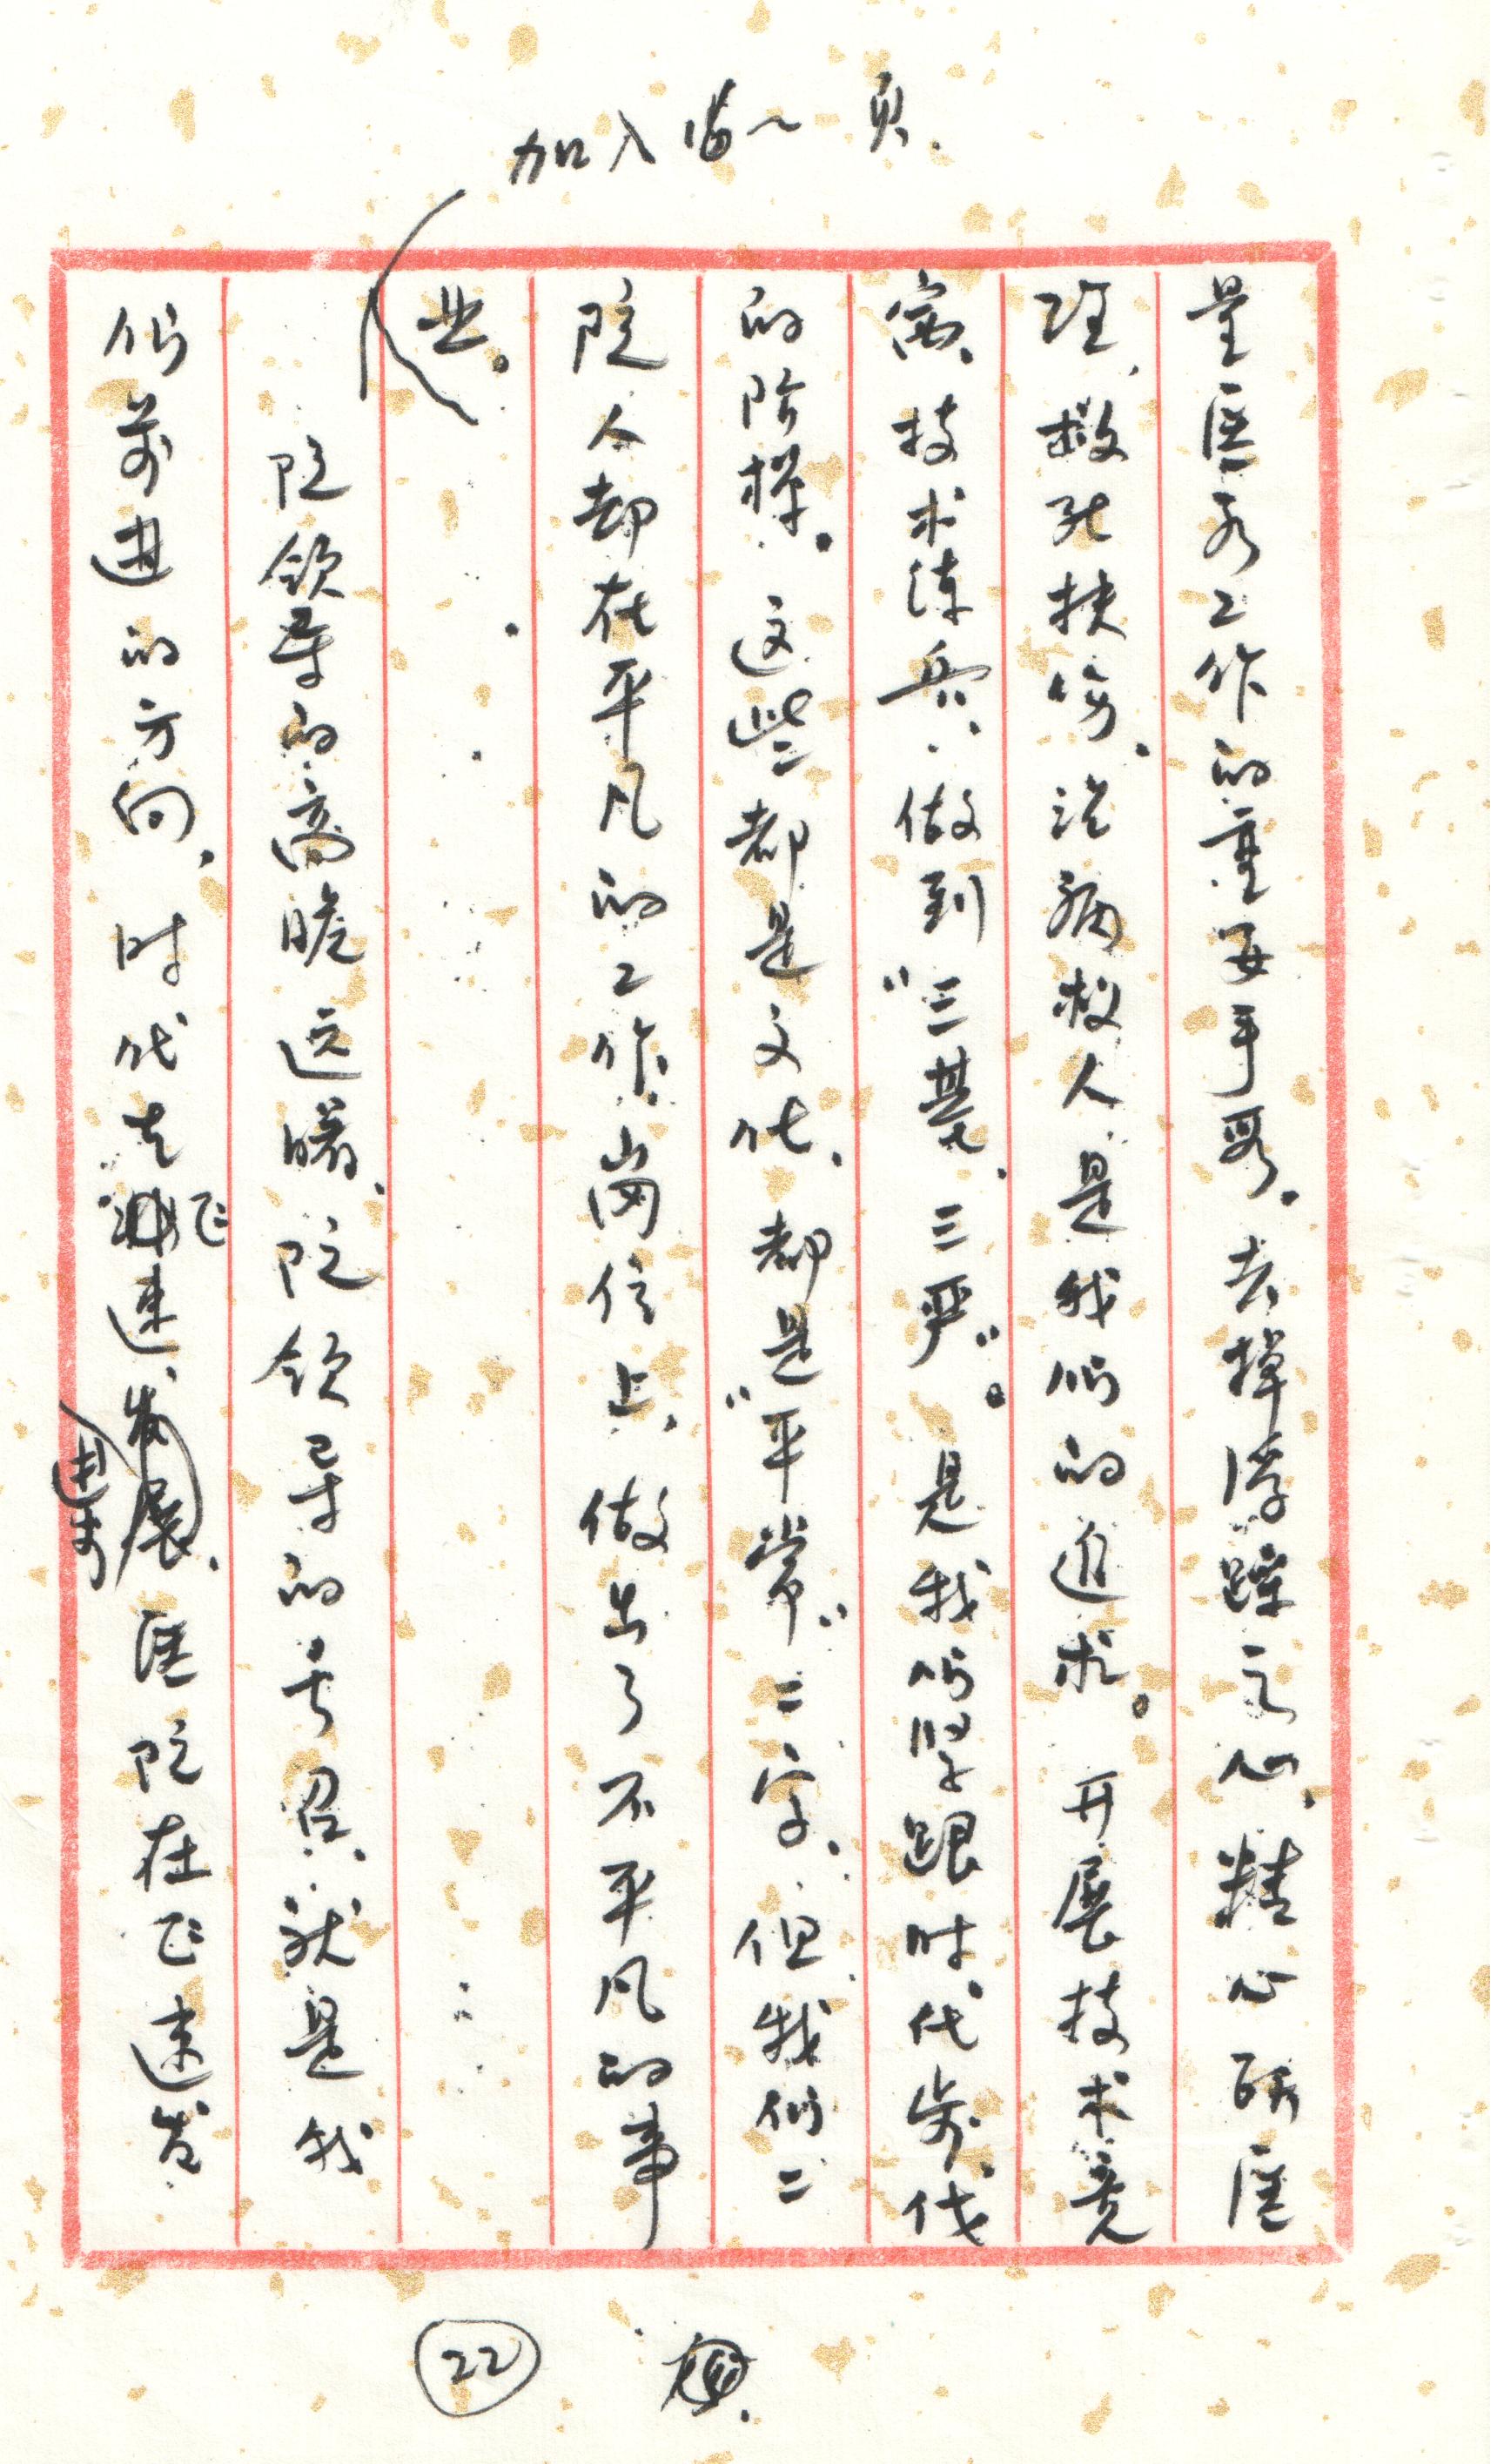 加入齿一页.
量医务工作的重要手段。去掉浮躁之心、精心研医
理、救死扶伤、治病救人是我们的追求。开展技术竞
赛、技术练兵、做到“三基、三严”。是我们紧跟时代步伐
的阶梯。这些都是文化、都是“平常”二字、但我们二
院人却在平凡的工作岗位上、做出了不平凡的事
业。
院领导的高瞻远瞩、院领导的号召、就是我
们前进的方向、时代在飞速、发展、医院在飞速发
进步
22